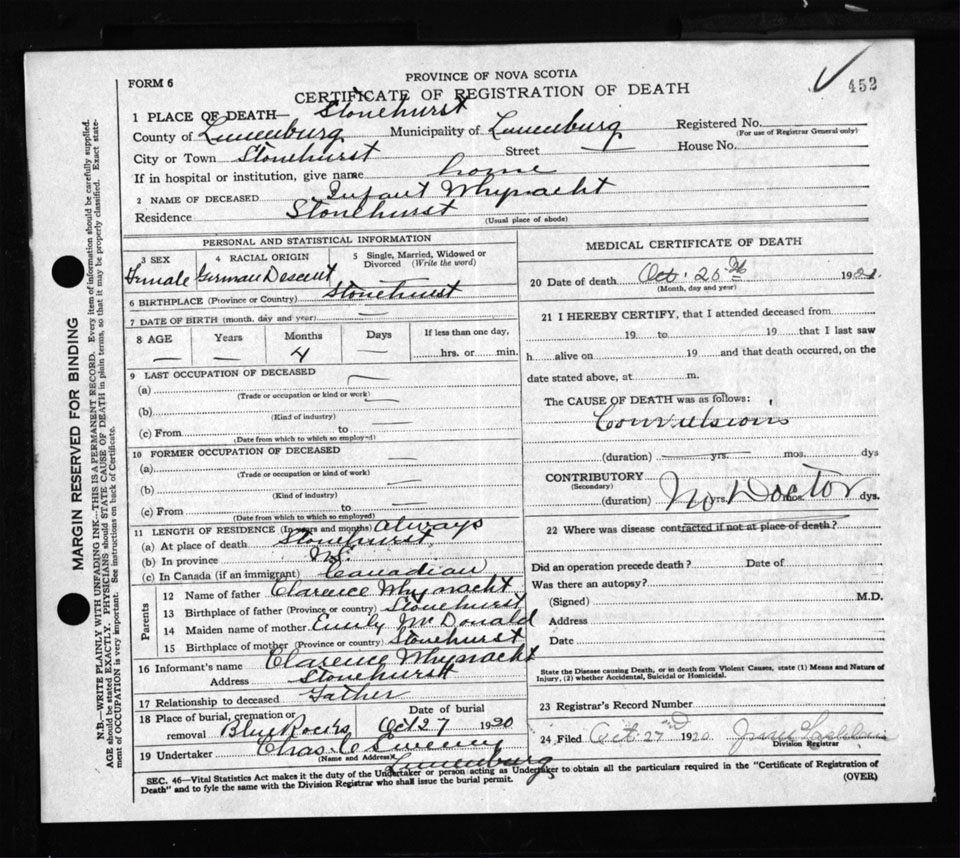 452
FORM 6
PROVINCE OF NOVA SCOTIA
CERTIFICATE OF REGISTRATION OF DEATH
1 PLACE OF DEATH— Stonehurst
County of Lunenburg Municipality of Lunenburg Registered No.
(For use of Registrar General only)
City or Town Stonehurst Street House No.
If in hospital or institution, give name home
2 NAME OF DECEASED Infant Whynacht
Residence Stonehurst
(Usual place of abode)
PERSONAL AND STATISTICAL INFORMATION
3 SEX 4 RACIAL ORIGIN 5 Single, Married, Widowed or Divorced (Write the word)
Female German Descent —
6 BIRTHPLACE (Province or Country) Stonehurst
7 DATE OF BIRTH (month, day and year) —
8 AGE Years Months Days If less than one day,
— — 4 — hrs. or min.
9 LAST OCCUPATION OF DECEASED
(a)
(Trade or occupation or kind or work)
(b)
(Kind of industry)
(c) From to
(Date from which to which so employed)
10 FORMER OCCUPATION OF DECEASED
(a)
(Trade or occupation or kind of work)
(b)
(Kind of industry)
(c) From to
(Date from which to which so employed)
11 LENGTH OF RESIDENCE (In years and months) Always
(a) At place of death Stonehurst
(b) In province N.S.
(c) In Canada (if an immigrant) Canadian
Parents
12 Name of father Clarence Whynacht
13 Birthplace of father (Province or country) Stonehurst
14 Maiden name of mother Emily McDonald
15 Birthplace of mother (Province or country) Stonehurst
16 Informant's name Clarence Whynacht
Address Stonehurst
17 Relationship to deceased Father
18 Place of burial, cremation or removal Blue Rocks Date of burial Oct 27 1920
19 Undertaker Chas. C Sweeney
(Name and Address)
Lunenburg
MEDICAL CERTIFICATE OF DEATH
20 Date of death Oct. 25th 192
(Month, day and year)
21 I HEREBY CERTIFY, that I attended deceased from
19 to 19 that I last saw
h alive on 19 and that death occurred, on the
date stated above, at m.
The CAUSE OF DEATH was as follows:
Convulsions
(duration) yrs. mos. dys
CONTRIBUTORY
(Secondary)
No Doctor
(duration) yrs. mos. dys.
22 Where was disease contracted if not at place of death?
Did an operation precede death? Date of
Was there an autopsy?
(Signed) M.D.
Address
Date
State the Disease causing Death, or in death from Violent Causes, state (1) Means and Nature of
Injury, (2) whether Accidental, Suicidal or Homicidal.
23 Registrar's Record Number
24 Filed Oct 27 1920
Division Registrar
SEC. 46—Vital Statistics Act makes it the duty of the Undertaker or person acting as Undertaker to obtain all the particulars required in the "Certificate of Registration of
Death" and to fyle the same with the Division Registrar who shall issue the burial permit.
(OVER)
MARGIN RESERVED FOR BINDING
N.B.—WRITE PLAINLY WITH UNFADING INK—THIS IS A PERMANENT RECORD. Every item of information should be carefully supplied.
AGE should be stated EXACTLY. PHYSICIANS should STATE CAUSE OF DEATH in plain terms, so that it may be properly classified. Exact state-
ment of OCCUPATION is very important. See instructions on back of Certificate.